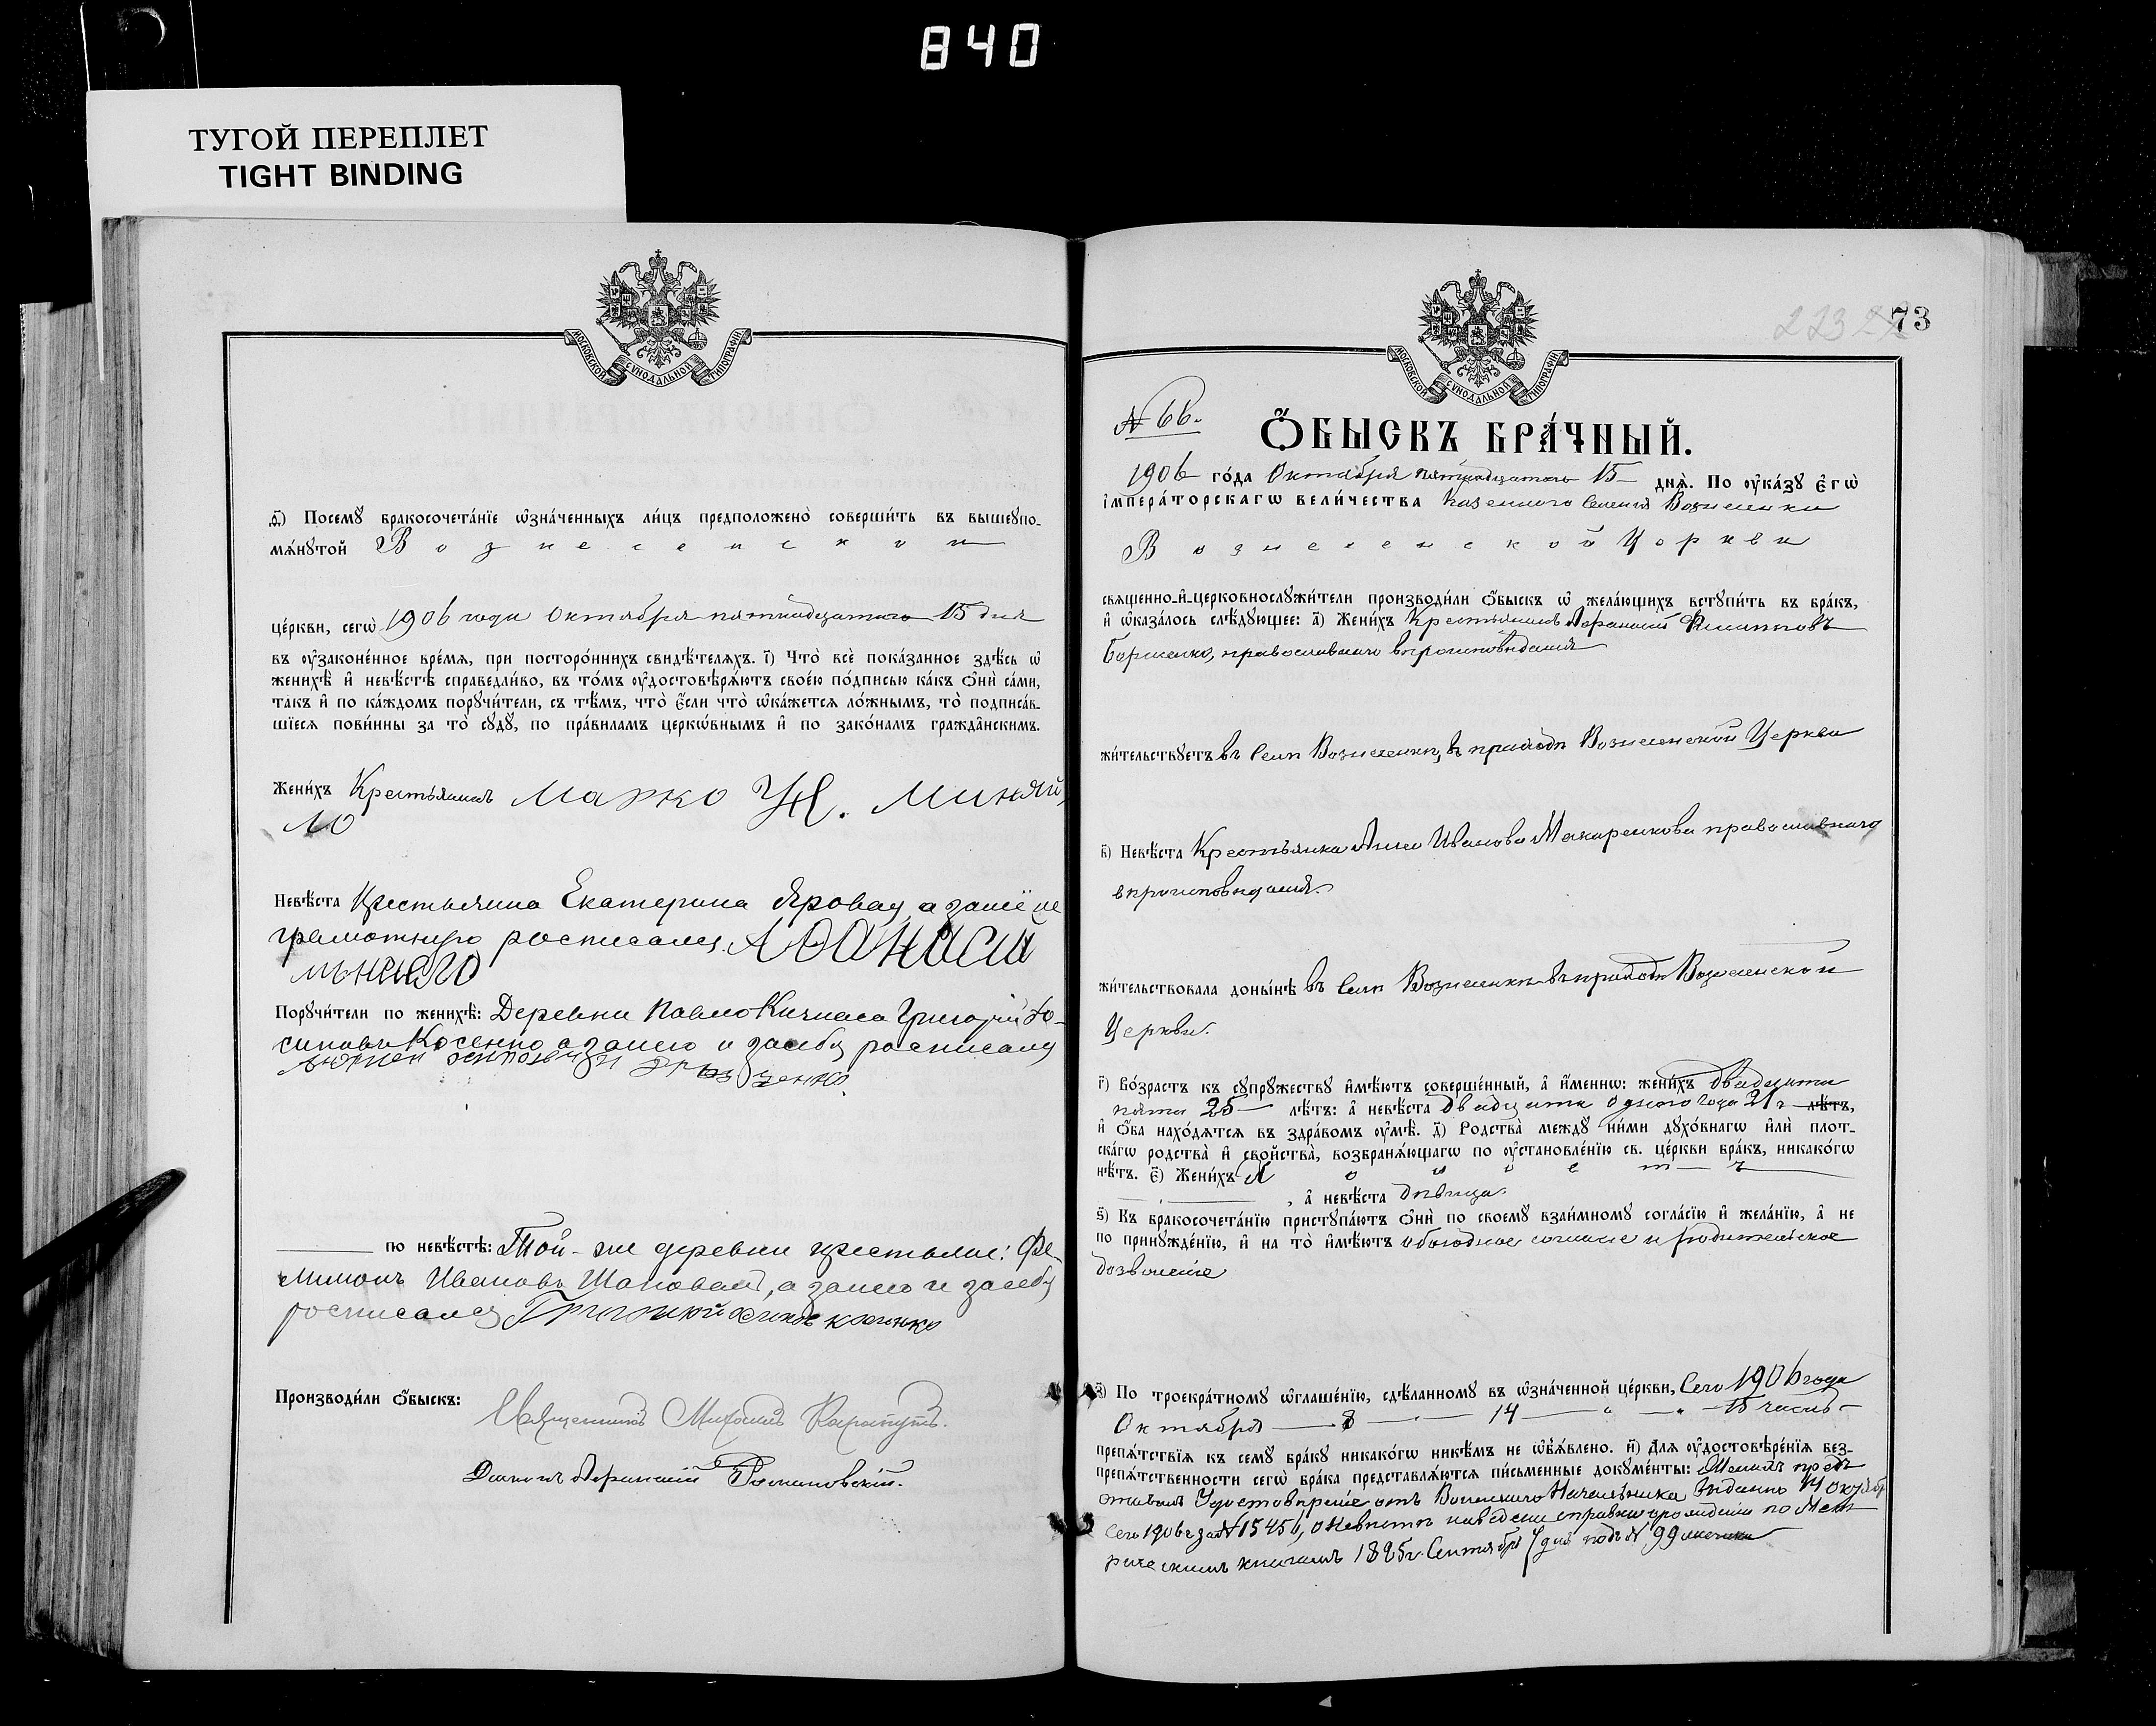 840
ТУГОЙ ПЕРЕПЛЕТ
TIGHT BINDING
МОСКОВСКОЙ СѴНОДАЛЬНОЙ ТИПОГРАФІИ
ѳ҃) Посемꙋ бракосочета́нїе ѡ҆зна́ченныхъ ли́цъ предположено̀ соверши́ть въ вышеꙋпо-
мѧ́нꙋтой Вознесенской
це́ркви, сегѡ̀ 1906 года Октября пятнадцатого 15 дня
въ ᲂу҆законе́нное вре́мѧ, при посторо́ннихъ свидѣ́телѧхъ. і҃) Что̀ всѐ пока́занное здѣ́сь ѡ҆
женихѣ̀ и҆ невѣ́стѣ справедли́во, въ то́мъ ᲂу҆достовѣрѧ́ютъ свое́ю по́дписью ка́къ ѻ҆нѝ са́ми,
та́къ и҆ по ка́ждомъ порꙋчи́тели, съ тѣ́мъ, что̀ є҆́сли что̀ ѡ҆ка́жетсѧ ло́жнымъ, то̀ подписа́в-
шїесѧ пови́нны за то̀ сꙋдꙋ̀, по пра́виламъ церкѡ́внымъ и҆ по зако́намъ гражда̂нскимъ.
Жени́хъ Крестьянинъ Марко Н. Миняй
ло
Невѣ́ста Крестьянина Екатерина Яровая, а за нее не
грамотную росписался Афанасій
Порꙋчи́тели по женихѣ̀: Деревни Павло Кичкаса Григорій Іо-
сиповъ Косенко а за него и за себя росписался
по невѣ́стѣ: Той-же деревни крестьяне: Фи-
лимонъ Ивановъ Шаповалъ, а за него и за себя
росписался Григорій Косенко
Производи́ли ѻ҆́быскъ: Священникъ Михаилъ
Діаконъ Афанасій
МОСКОВСКОЙ СѴНОДАЛЬНОЙ ТИПОГРАФІИ
223 73
№ 66.
Ѻ҆́БЫСКЪ БРА́ЧНЫЙ.
1906 го́да Октября пятнадцатого 15 днѧ̀. По ᲂу҆ка́зꙋ є҆гѡ̀
і҆мпера́торскагѡ вели́чества Казенного Селенія Вознесенки
Вознесенской Церкви
свѧще́нно-и҆-церковнослꙋжи́тели производи́ли ѻ҆́быскъ ѡ҆ жела́ющихъ встꙋпи́ть въ бра́къ,
и҆ ѡ҆каза́лось слѣ́дꙋющее: а҃) Жени́хъ Крестьянинъ Афанасій Филипповъ
Борисенко, православнаго вѣроисповѣданія
жи́тельствꙋетъ въ селѣ Вознесенкѣ, въ приходѣ Вознесенской Церкви
в҃) Невѣ́ста Крестьянка Анна Иванова Макаренкова православнаго
вѣроисповѣданія.
жи́тельствовала доны́нѣ въ селѣ Вознесенкѣ въ приходѣ Вознесенской
Церкви.
г҃) Во́зрастъ къ сꙋпрꙋ́жествꙋ и҆мѣ́ютъ соверше́нный, а҆ и҆́меннѡ: жени́хъ двадцати
пяти 25 лѣ́тъ: а҆ невѣ́ста двадцати одного года 21 г. лѣ́тъ,
и҆ ѻ҆́ба нахо́дѧтсѧ въ здра́вомъ ᲂу҆мѣ̀. д҃) Родства̀ междꙋ̀ ни́ми дꙋхо́внагѡ и҆лѝ плот-
ска́гѡ родства̀ и҆ сво́йства̀, возбранѧ́ющагѡ по ᲂу҆становле́нїю св. це́ркви бра́къ, никако́гѡ
нѣ́тъ. є҃) Жени́хъ холостъ
, а҆ невѣ́ста дѣвица.
ѕ҃) Къ бракосочета́нїю пристꙋпа́ютъ ѻ҆нѝ по своемꙋ̀ взаи́мномꙋ согла́сїю и҆ жела́нїю, а҆ не
по принꙋжде́нїю, и҆ на то̀ и҆мѣ́ютъ обоюдное согласіе и родительское
дозволеніе
з҃) По троекра́тномꙋ ѡ҆глаше́нїю, сдѣ́ланномꙋ въ ѡ҆зна́ченной це́ркви, Сего 1906 года
Октября 8 14 15 числъ
препѧ́тствїѧ къ семꙋ̀ бра́кꙋ никако́гѡ никѣ́мъ не ѡ҆б̾ѧ́влено. и҃) Длѧ ᲂу҆достовѣре́нїѧ без-
препѧ́тственности сегѡ̀ бра́ка представлѧ́ютсѧ пи́сьменные докꙋме́нты: Женихъ пред-
ставилъ Удостовѣреніе отъ Воинскаго Начальника выданно 14 октяб
сего 1906 г за № 15456, о невѣстѣ наведены справки о рожденіи по Мет-
рическимъ книгамъ 1885 г. Сентября 7 дня подъ № 99 женска